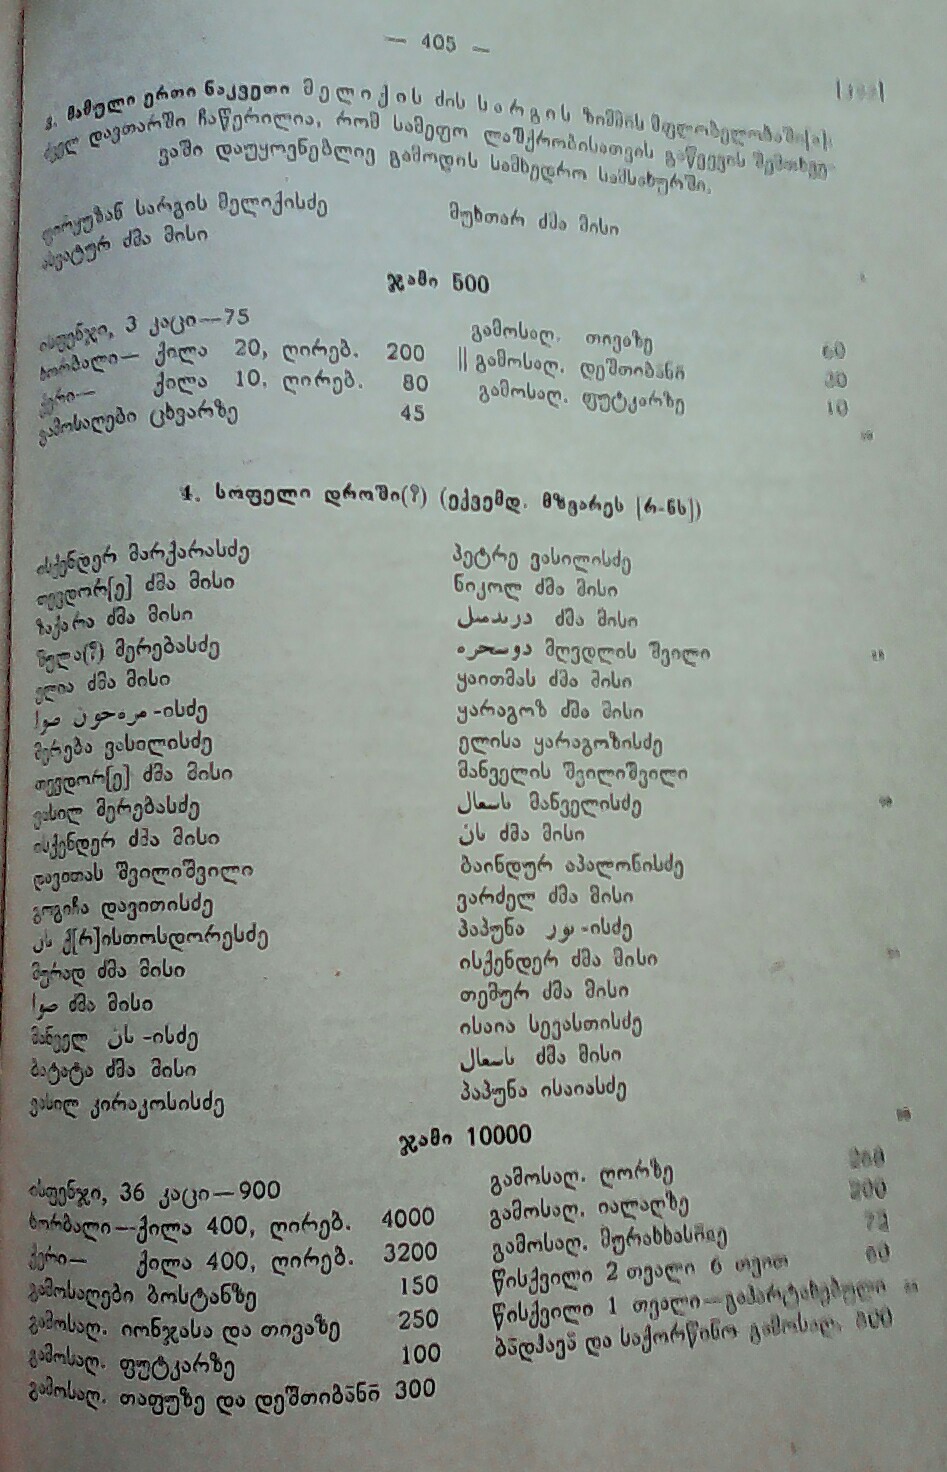 — 405 —
3. მამული ერთი ნაკვეთი მელიქის ძის სარგის ზიმმის მფლობელობაში(ა)
ძველ დავთარში ჩაწერილია, რომ სამეფო ლაშქრობისათვის გაწვევის შემთხვე-
ვაში დაუყოვნებლივ გამოდის სამხედრო სამსახურში.
ფირყუზან სარგის მელიქისძე
მუხთარ ძმა მისი
ასვატურ ძმა მისი
ჯამი 500
ისფენჯი, 3 კაცი—75
ხორბალი— ქილა 20, ღირებ. 200
ქერი— ქილა 10, ღირებ. 80
გამოსაღები ცხვარზე 45
გამოსაღ. თივაზე 60
|| გამოსაღ. დეშთიბა̄ნი̄ 30
გამოსაღ. ფუტკარზე 10
4. სოფელი დროში(?) (ექვემდ. მზვარეს [რ-ნს])
ისქენდერ მარქარასძე
თევდორ[ე] ძმა მისი
ზაქარა ძმა მისი
წელა(?) მერებასძე
ელია ძმა მისი
مرهجون صوا -ისძე
მერება ვასილისძე
თევდორ[ე] ძმა მისი
ვასილ მერებასძე
ისქენდერ ძმა მისი
დავითას შვილიშვილი
გოგიჩა დავითისძე
ქ[რ]ისთოსდორესძე
მურად ძმა მისი
صوا ძმა მისი
მანველ كن -ისძე
ბატატა ძმა მისი
ვასილ კირაკოსისძე
პეტრე ვასილისძე
ნიკოლ ძმა მისი
ძმა მისი
دوسحره მღვდლის შვილი
ყაითმას ძმა მისი
ყარაგოზ ძმა მისი
ელისა ყარაგოზისძე
მანველის შვილიშვილი
მანველისძე
كن ძმა მისი
ბაინდურ აპალონისძე
ვარძელ ძმა მისი
პაპუნა -ისძე
ისქენდერ ძმა მისი
თემურ ძმა მისი
ისაია სევასთისძე
ძმა მისი
პაპუნა ისაიასძე
ჯამი 10000
ისფენჯი, 36 კაცი—900
ხორბალი—ქილა 400, ღირებ. 4000
ქერი— ქილა 400, ღირებ. 3200
გამოსაღები ბოსტანზე 150
გამოსაღ. იონჯასა და თივაზე 250
გამოსაღ. ფუტკარზე 100
გამოსაღ. თაფუზე და დეშთიბა̄ნი̄ 300
გამოსაღ. ღორზე
გამოსაღ. იალაღზე
გამოსაღ. მურახხასი̄იე
წისქვილი 2 თვალი 6 თვით
წისქვილი 1 თვალი—გაპარტახებული
ბა̄დჰავა̄ და საქორწინო გამოსაღ.